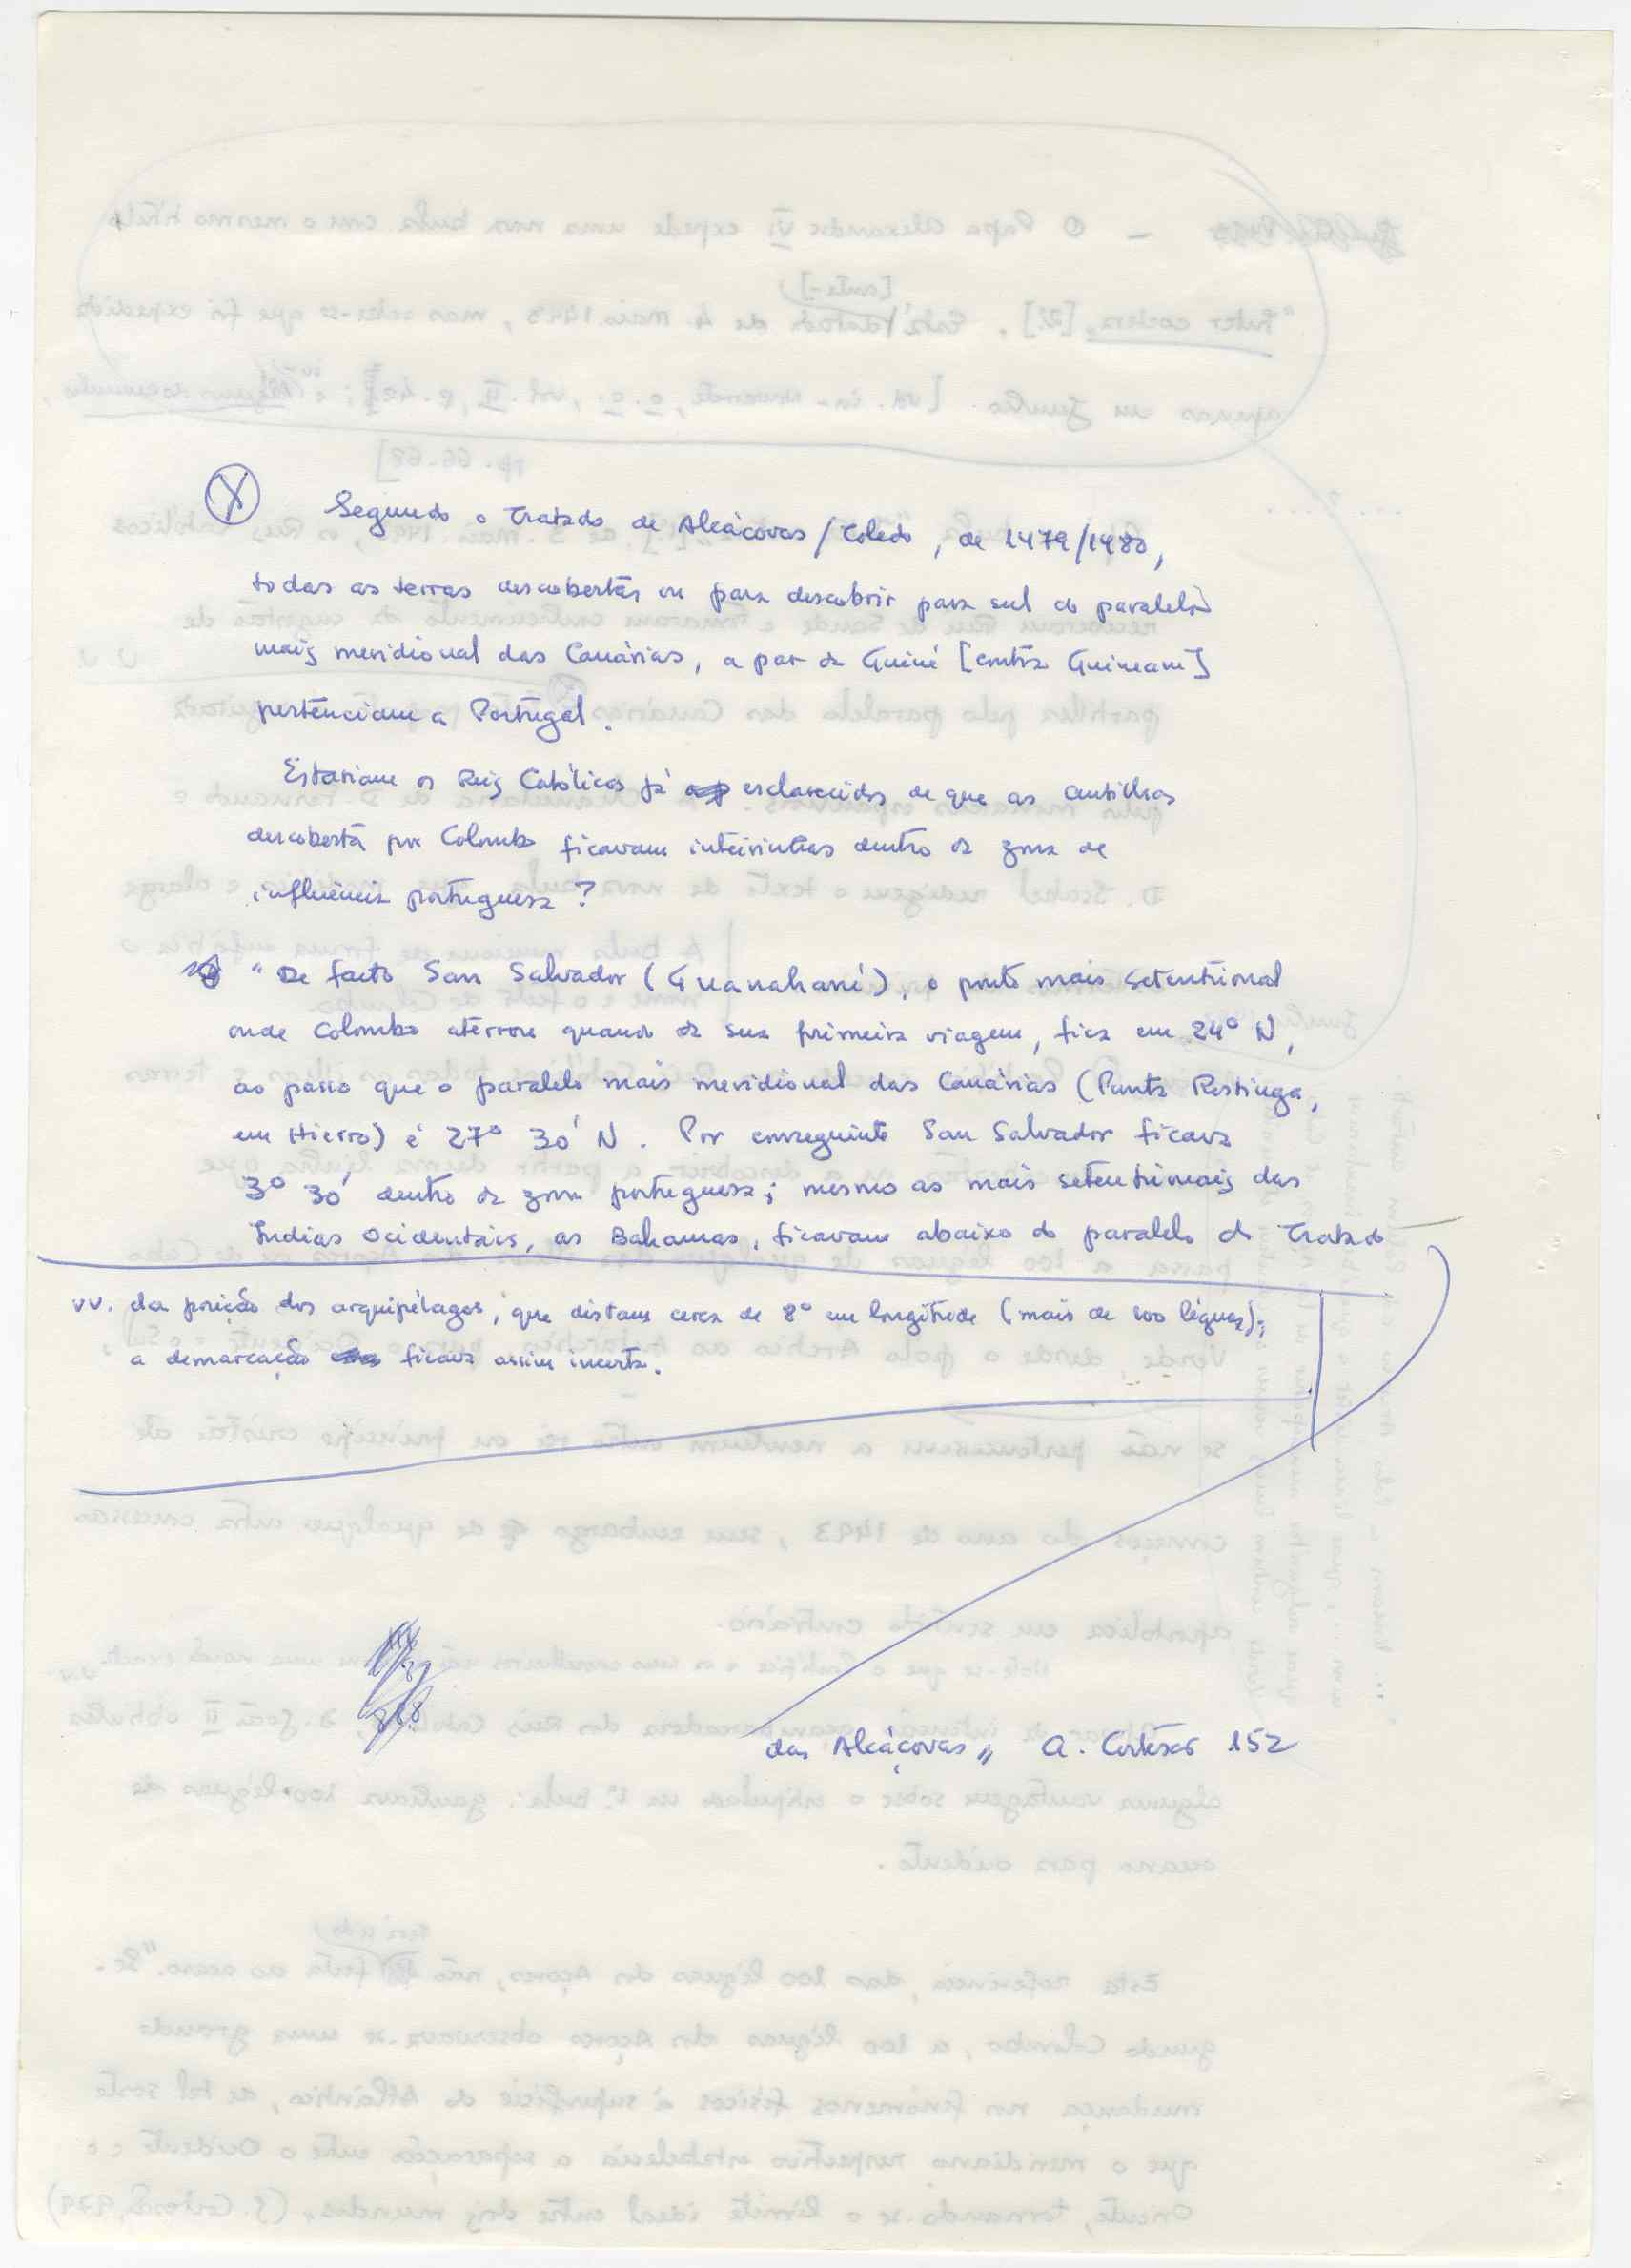 X Segundo o Tratado de Alcáçovas / Toledo, de 1479/1480,
todas as terras descobertas ou para descobrir para sul do paralelo
mais meridional das Canárias, a par da Guiné [contra Guineam]
pertenciam a Portugal.
Estariam os Reis Católicos já esclarecidos de que as Antilhas
descoberta por Colombo ficavam inteirinhas dentro da zona de
influência portuguesa?
"De facto San Salvador (Guanahani), o ponto mais setentrional
onde Colombo aterrou quando da sua primeira viagem, fica em 24° N,
ao passo que o paralelo mais meridional das Canárias (Punta Restinga,
em Hierro) é 27° 30' N. Por conseguinte San Salvador ficava
3° 30' dentro da zona portuguesa; mesmo as mais setentrionais das
Índias Ocidentais, as Bahamas, ficavam abaixo do paralelo do Tratado
das Alcáçovas" A. Cortesão 152
vv. da posição dos arquipélagos, que distam cerca de 8° em longitude (mais de 100 léguas);
a demarcação ficava assim incerta.